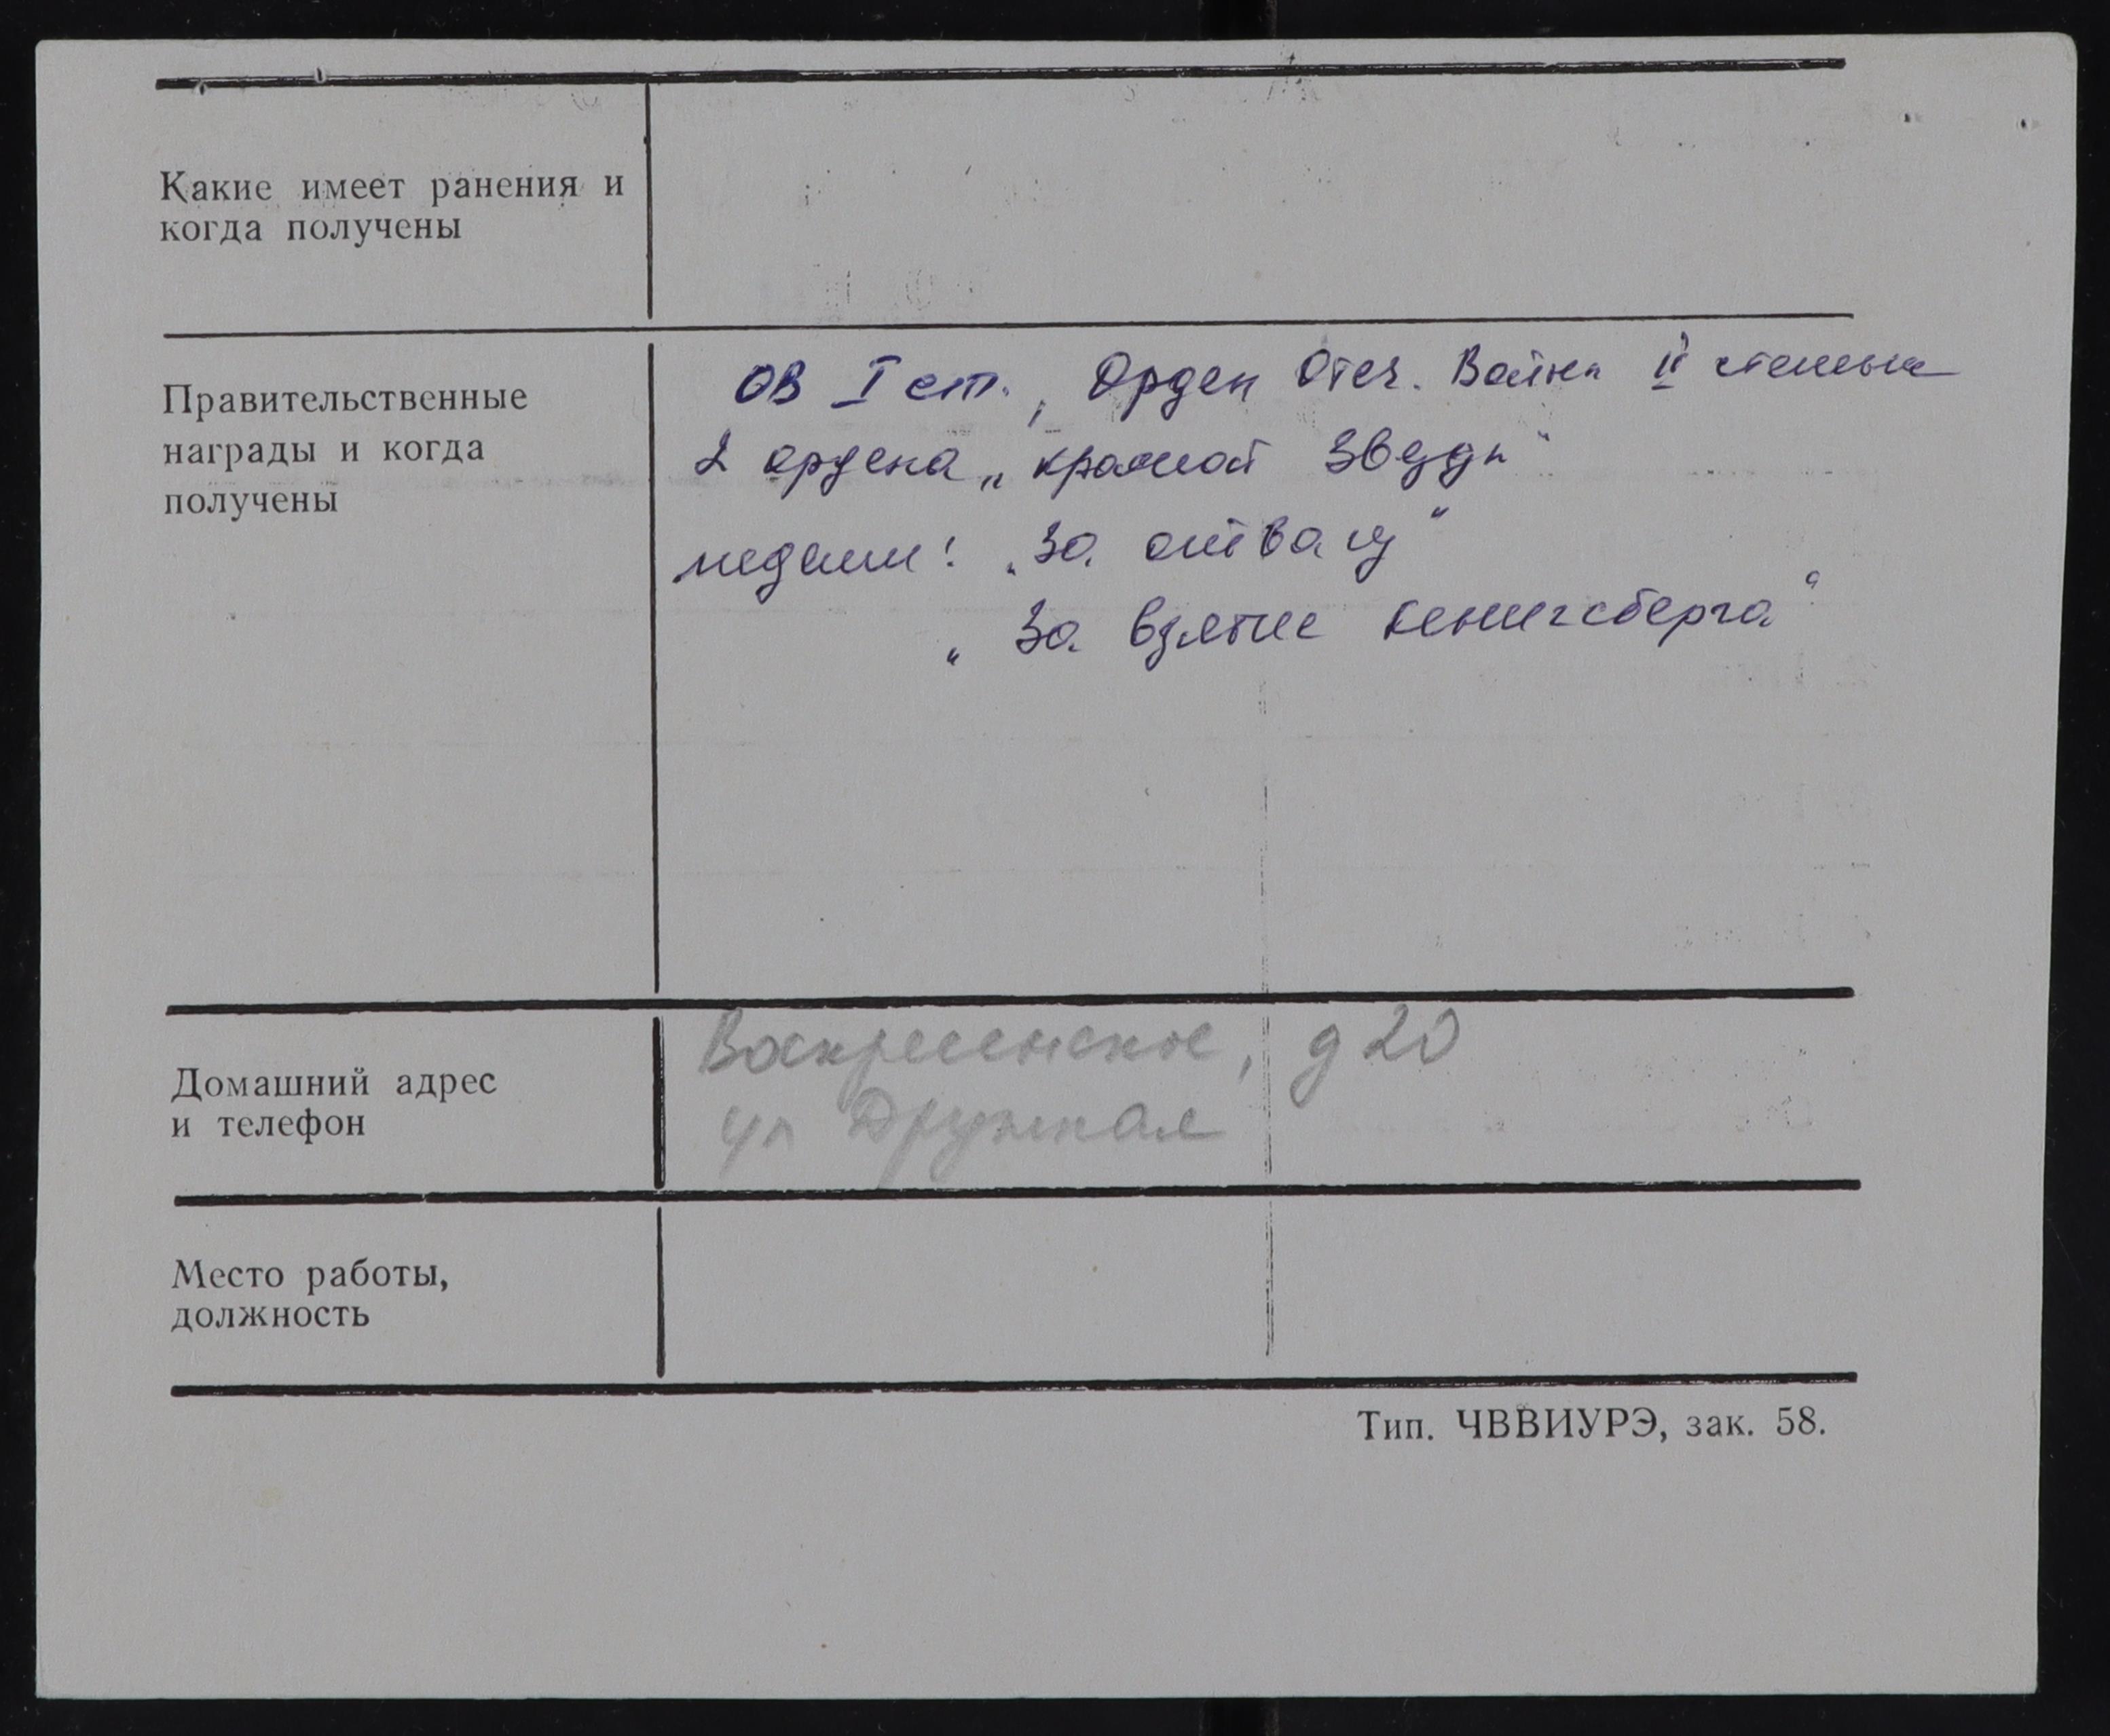 Какие имеет ранения и
когда получены
Правительственные
награды и когда
получены
ОВ I ст., Орден Отеч. Войны II степени
2 ордена „Красной Звезды“
медали: „За отвагу“
„За взятие Кенигсберга“
Домашний адрес
и телефон
Воскресенское, д 20
ул Дружная
Место работы,
должность
Тип. ЧВВИУРЭ, зак. 58.